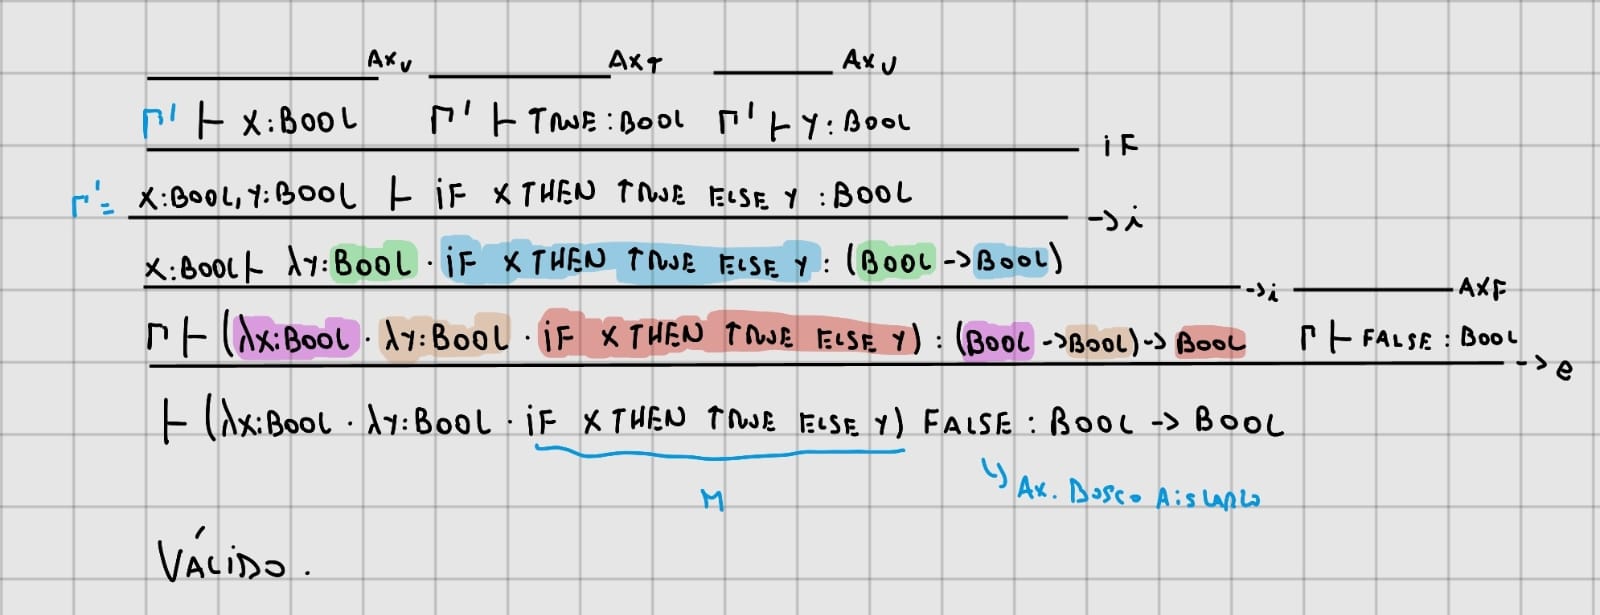 AXv AXT AXv
Γ' ⊢ X:BOOL Γ' ⊢ TRUE:BOOL Γ' ⊢ Y:BOOL
iF
Γ'= X:BOOL, Y:BOOL ⊢ iF X THEN TRUE ELSE Y :BOOL
->i
X:BOOL ⊢ λY:BOOL · iF X THEN TRUE ELSE Y : (BOOL->BOOL)
->i AXF
Γ ⊢ (λX:BOOL · λY:BOOL · iF X THEN TRUE ELSE Y) : (BOOL->BOOL)-> BOOL Γ ⊢ FALSE : BOOL
->e
⊢ (λX:BOOL · λY:BOOL · iF X THEN TRUE ELSE Y) FALSE : BOOL -> BOOL
M ↳ AX. BUSCO AiSLARLO
VÁLiDO.